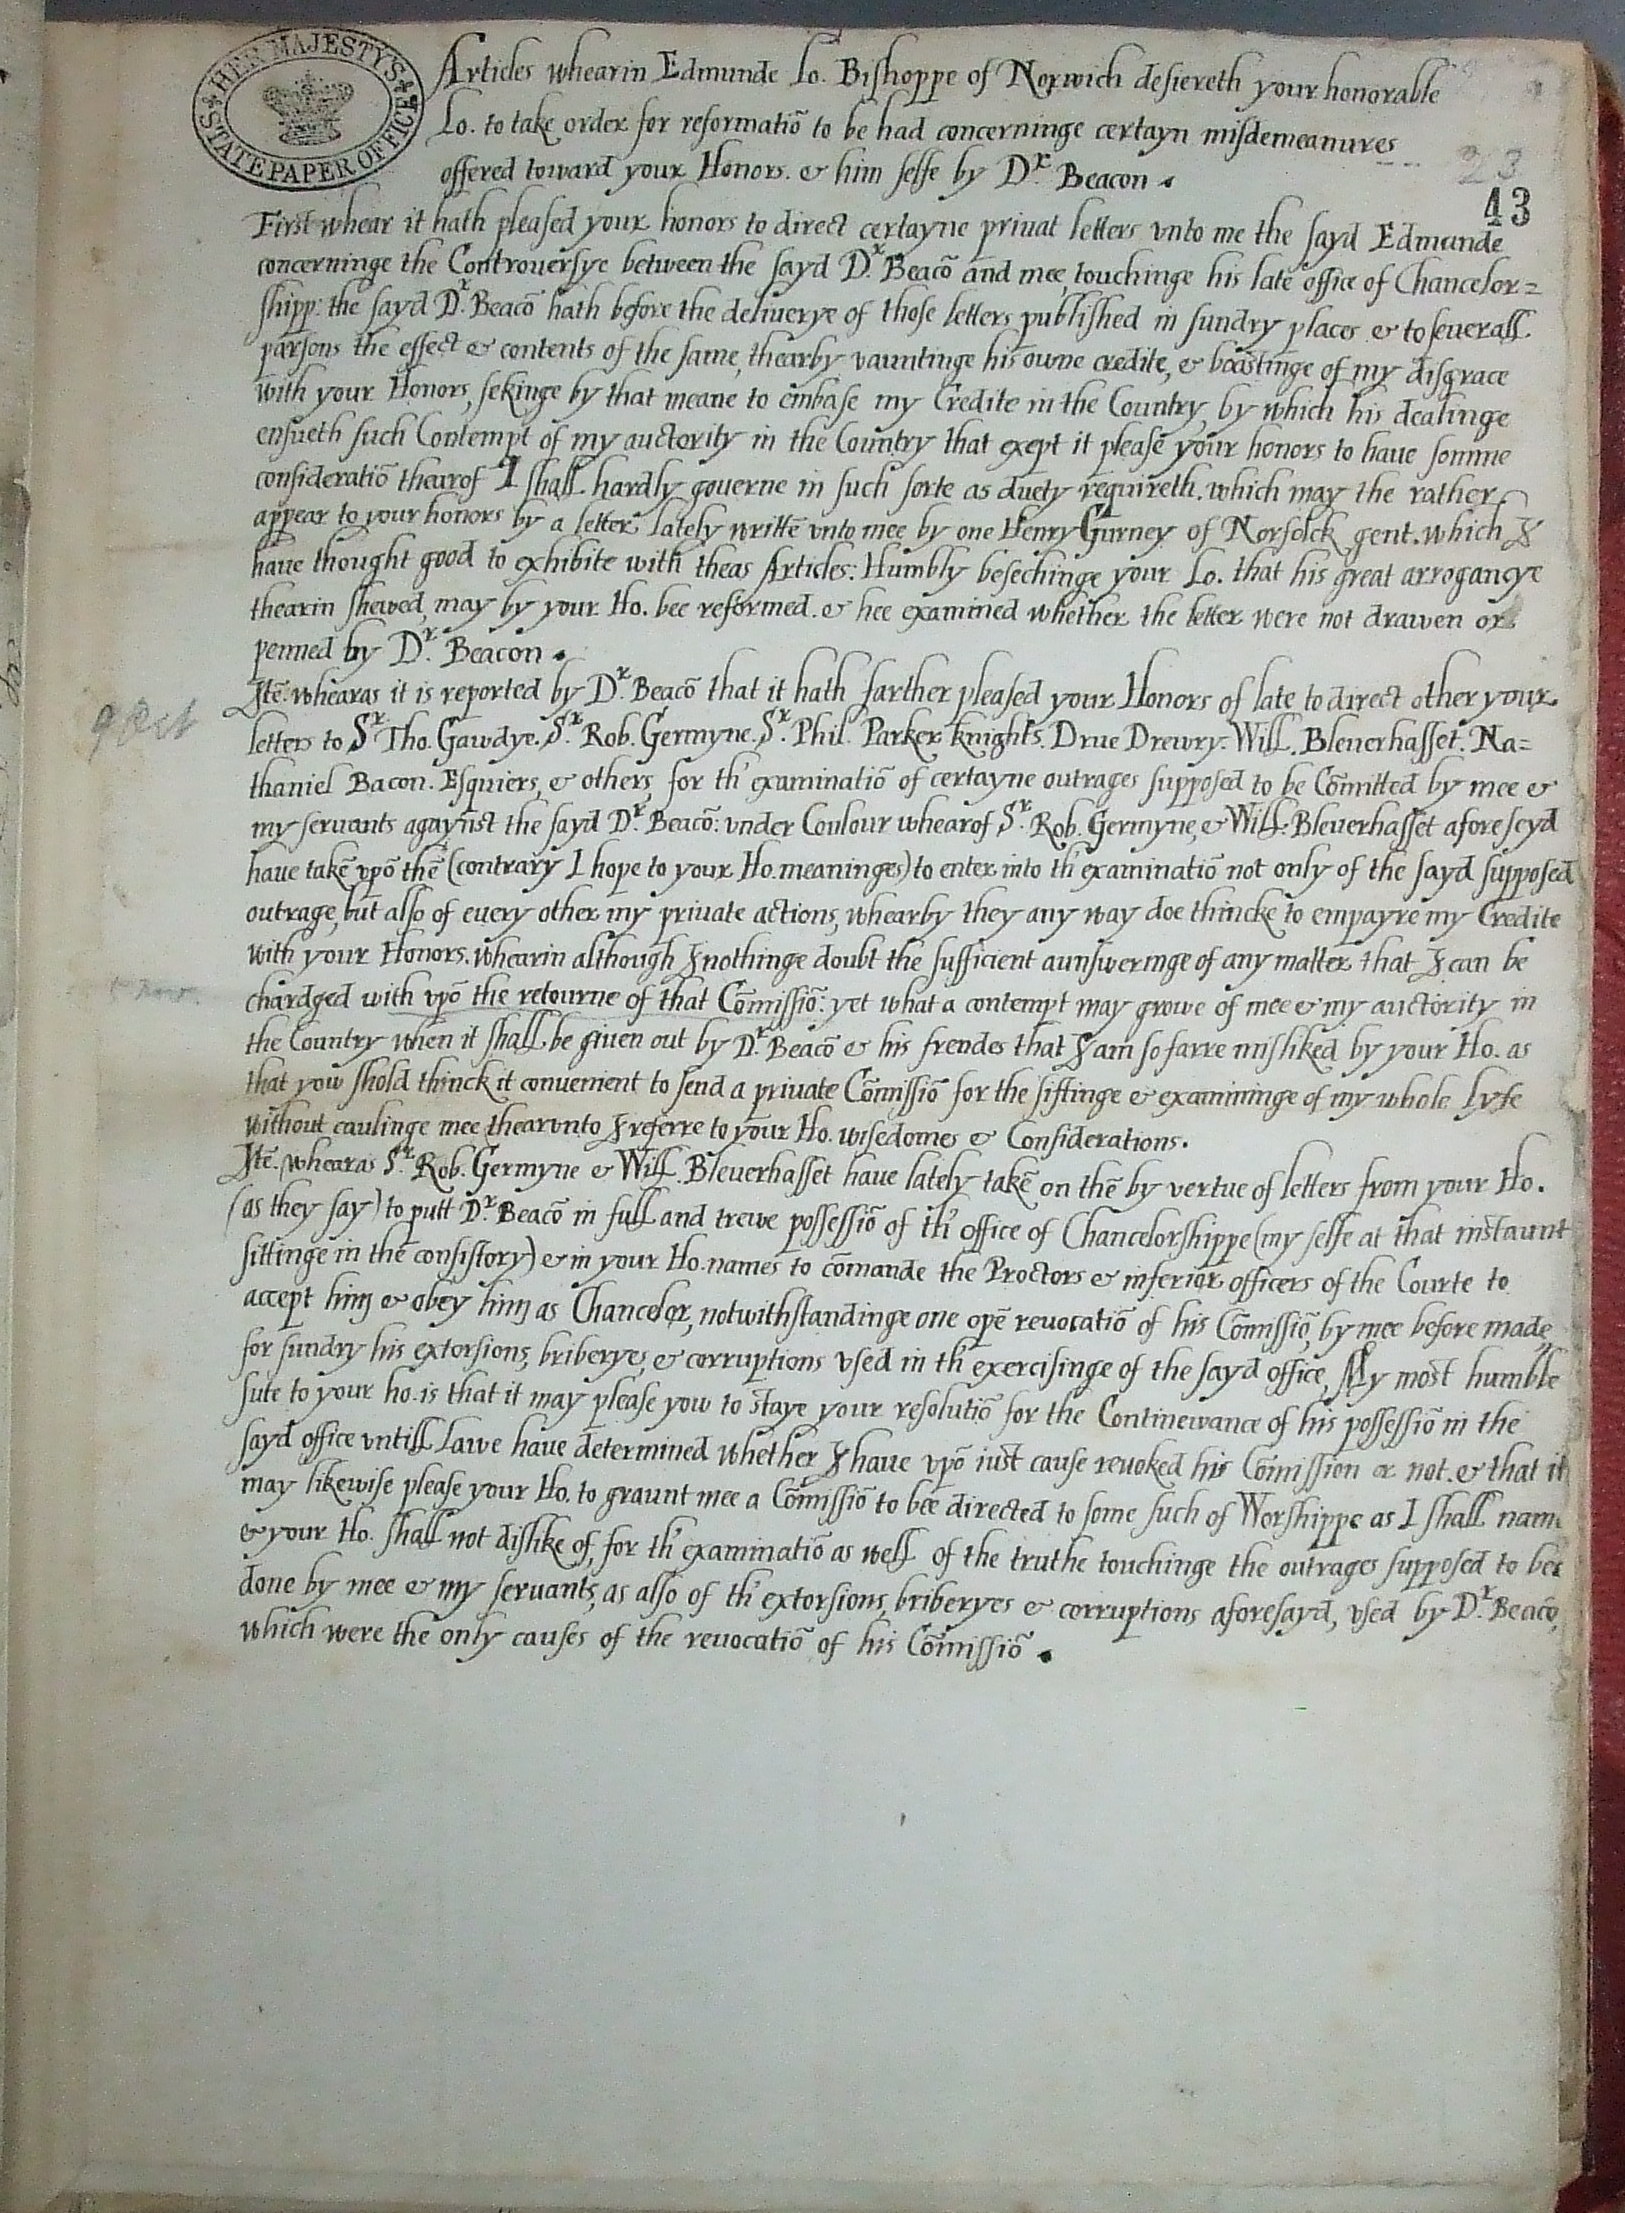 HER MAJESTY'S STATE PAPER OFFICE
Articles whearin Edmunde Lo. Bishoppe of Norwich desiereth your honorable
Lo. to take order for reformatiō to be had concerninge certayn misdemeanures
offered toward your Honors. & him selfe by Dr. Beacon.
23
43
First whear it hath pleased your honors to direct certayne privat letters vnto me the sayd Edmunde
concerninge the Controversye between the sayd Dr. Beacō and mee, touchinge his late office of Chancelor=
shipp: the sayd Dr. Beacō hath before the deliuerye of those letters published in sundry places & to seuerall
parsons the effect & contents of the same, thearby vauntinge his owne credite, & boastinge of my disgrace
with your Honors, sekinge by that meane to embase my Credite in the Country, by which his dealinge
ensueth such Contempt of my auctority in the Country that exept it please your honors to haue somme
consideratiō thearof I shall hardly gouerne in such sorte as duety requireth. which may the rather
appear to your honors by a letter lately writtē vnto mee by one Henry Gurney of Norfolck gent. which I
haue thought good to exhibite with theas Articles: Humbly besechinge your Lo. that his great arrogancye
thearin shewed, may by your Ho. bee reformed. & hee examined whether the letter were not drawen or
penned by Dr. Beacon.
Itē. whearas it is reported by Dr. Beacō that it hath farther pleased your Honors of late to direct other your
9 Oct
letters to Sr. Tho. Gawdye. Sr. Rob. Germyne. Sr. Phil. Parker knights. Drue Drewry. Will. Bleuerhasset. Na=
thaniel Bacon. Esquiers, & others, for th' examinatiō of certayne outrages supposed to be Cōmitted by mee &
my seruants agaynst the sayd Dr. Beacō: vnder Coulour whearof Sr. Rob. Germyne, & Will: Bleuerhasset aforeseyd
haue takē vpō thē (contrary I hope to your Ho. meaninges) to enter into th' examinatiō not only of the sayd supposed
outrage, but also of euery other my private actions, whearby they any way doe thincke to empayre my Credite
with your Honors. whearin although I nothinge doubt the sufficient aunsweringe of any matter that I can be
chardged with vpō the retourne of that Cōmissiō: yet what a contempt may growe of mee & my auctority in
the Country when it shall be giuen out by Dr. Beacō & his frendes that I am so farre misliked by your Ho. as
that yow shold thinck it convenient to send a private Cōmissiō for the siftinge & examininge of my whole lyfe
without caulinge mee thearvnto I referre to your Ho. wisedomes & Considerations.
Itē. whearas Sr. Rob. Germyne & Will. Bleuerhasset haue lately takē on thē by vertue of letters from your Ho.
(as they say) to putt Dr. Beacō in full and trewe possessiō of th' office of Chancelorshippe (my selfe at that instaunt
sittinge in the consistory) & in your Ho. names to cōmande the Proctors & inferior officers of the Courte to
accept him & obey him as Chancelor, notwithstandinge one opē revocatiō of his Cōmissiō, by mee before made,
for sundry his extorsions, briberyes, & corruptions vsed in th' exercisinge of the sayd office, My most humble
sute to your ho. is that it may please yow to staye your resolutiō for the Continewance of his possessiō in the
sayd office vntill lawe haue determined whether I haue vpō iust cause reuoked his Cōmission or not. & that it
may likewise please your Ho. to graunt mee a Cōmissiō to bee directed to some such of Worshippe as I shall name
& your Ho. shall not dislike of, for th' examinatiō as well of the truthe touchinge the outrages supposed to bee
done by mee & my servants, as also of th' extorsions, briberyes & corruptions aforesayd, vsed by Dr. Beacō,
which were the only causes of the reuocatiō of his Cōmissiō.